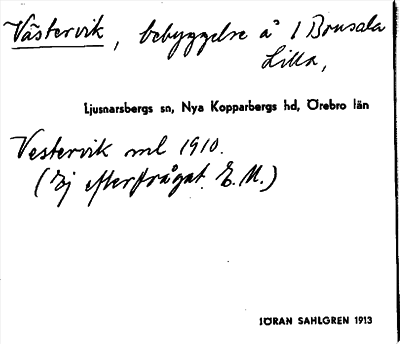 Västervik, bebyggelse å 1 Bonsala
Lilla,
Ljusnarsbergs sn, Nya Kopparbergs hd, Örebro län
Vestervik ml 1910.
(Ej efterfrågat. E. M.)
JÖRAN SAHLGREN 1913